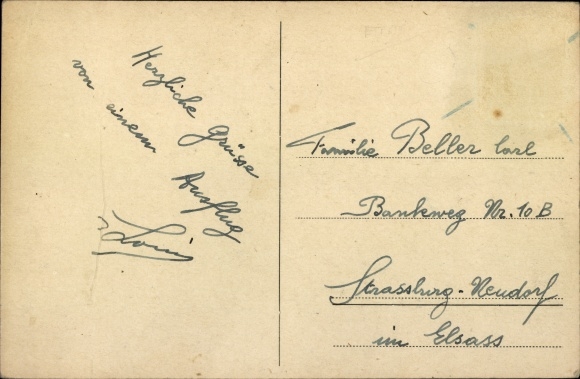 Herzliche Grüsse
von einem Ausflug
Familie Beller Carl
Bankweg Nr. 10 B
Strassburg-Neudorf
im Elsass